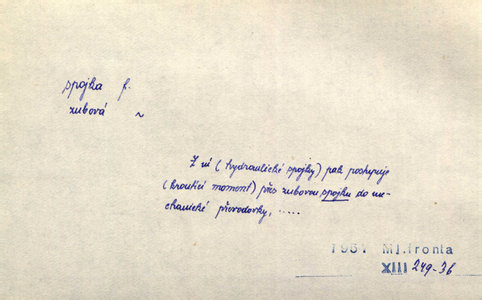 spojka f.
zubová ~
Z ní (hydraulické spojky) pak postupuje
(kroutící moment) přes zubovou spojku do me-
chanické převodovky, .....
1957 Ml.fronta
XIII 249-36